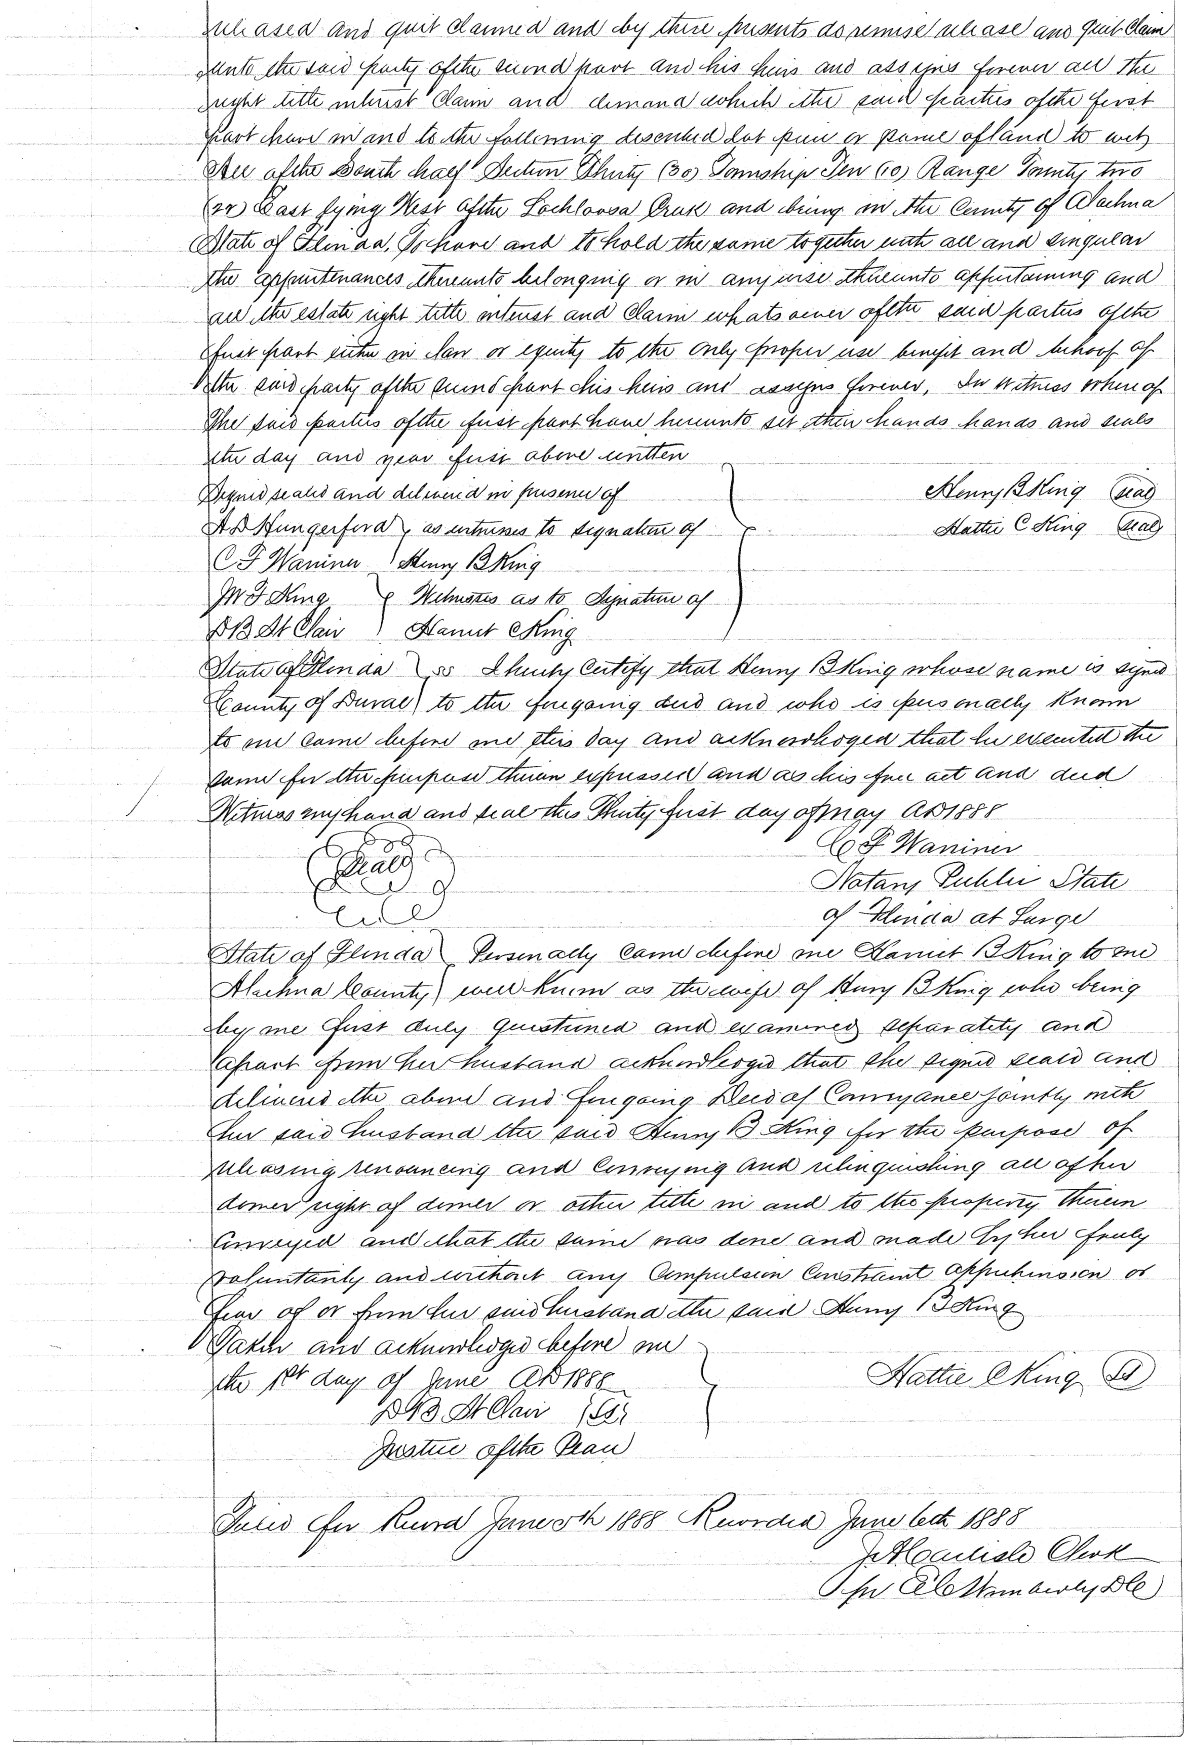 released and quit claimed and by these presents do remise release and quit Claim
unto the said party of the second part and his heirs and assigns forever all the
right title interest Claim and demand which the said parties of the first
part have in and to the following described lot piece or parcel of land to wit
All of the South half Section Thirty (30) Township Ten (10) Range Twenty two
(22) East lying West of the Lochloosa Creek and being in the County of Alachua
State of Florida, To have and to hold the same together with all and singular
the appurtenances thereunto belonging or in anywise thereunto appertaining and
all the estate right title interest and Claim whatsoever of the said parties of the
first part either in Law or equity to the only proper use benefit and behoof of
the said party of the second part his heirs and assigns forever, In Witness Whereof
The said parties of the first part have hereunto set their hands hands and seals
the day and year first above written
Signed sealed and delivered in presence of Henry B King (seal)
A D Hungerford as witnesses to signature of Hattie C King (seal)
C F Waniner Henry B King
M F King Witnesses as to Signature of
D B St Clair Harriet C King
State of Florida ss I hereby Certify that Henry B King whose name is signed
County of Duval to the foregoing deed and who is personally Known
to me came before me this day and acknowledged that he executed the
same for the purpose therein expressed and as his free act and deed
Witness my hand and seal this Thirty first day of May AD 1888
C F Waniner
(Seal) Notary Public State
of Florida at Large
State of Florida Personally came before me Harriet B King to me
Alachua County well known as the wife of Henry B King who being
by me first duly questioned and examined separately and
apart from her husband acknowledged that she signed seald and
delivered the above and foregoing Deed of Conveyance jointly with
her said husband the said Henry B King for the purpose of
releasing renouncing and Conveying and relinquishing all of her
dower right of dower or other title in and to the property therein
Conveyed and that the same was done and made by her freely
voluntarily and without any Compulsion Constraint apprehension or
fear of or from her said husband the said Henry B King
Taken and acknowledged before me
the 1st day of June AD 1888 Hattie C King
D B St Clair
Justice of the Peace
Filed for Record June 5th 1888 Recorded June 6th 1888
Carlisle Clerk
Per Wimberly DC